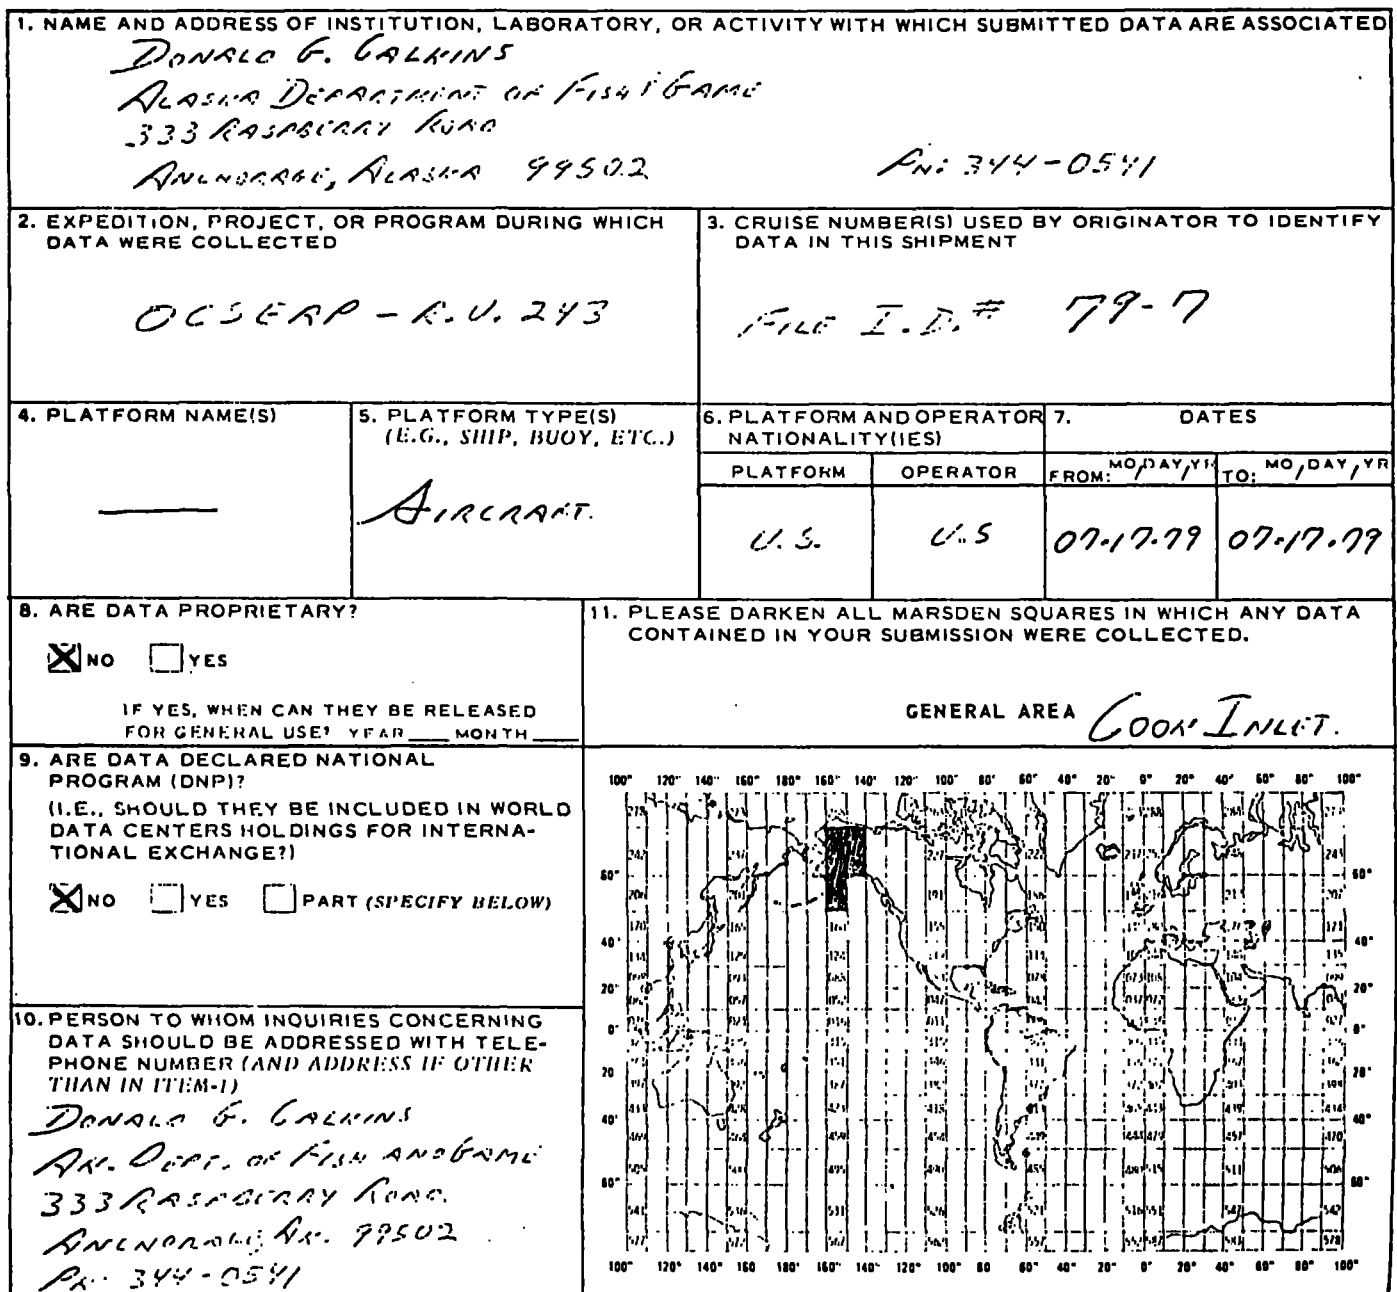 1. NAME AND ADDRESS OF INSTITUTION, LABORATORY, OR ACTIVITY WITH WHICH SUBMITTED DATA ARE ASSOCIATED
DONALD G. CALKINS
ALASKA DEPARTMENT OF FISH & GAME
333 RASPBERRY ROAD
ANCHORAGE, ALASKA 99502 PH: 344-0541
2. EXPEDITION, PROJECT, OR PROGRAM DURING WHICH
DATA WERE COLLECTED
OCSEAP - R.U. 243
3. CRUISE NUMBER(S) USED BY ORIGINATOR TO IDENTIFY
DATA IN THIS SHIPMENT
FILE I.D.# 79-7
4. PLATFORM NAME(S)
5. PLATFORM TYPE(S)
(E.G., SHIP, BUOY, ETC.)
AIRCRAFT.
6. PLATFORM AND OPERATOR
NATIONALITY(IES)
PLATFORM OPERATOR
U.S. U.S
7. DATES
FROM: MO/DAY/YR TO: MO/DAY/YR
07.17.79 07.17.79
8. ARE DATA PROPRIETARY?
NO YES
IF YES, WHEN CAN THEY BE RELEASED
FOR GENERAL USE? YEAR MONTH
9. ARE DATA DECLARED NATIONAL
PROGRAM (DNP)?
(I.E., SHOULD THEY BE INCLUDED IN WORLD
DATA CENTERS HOLDINGS FOR INTERNA-
TIONAL EXCHANGE?)
NO YES PART (SPECIFY BELOW)
10. PERSON TO WHOM INQUIRIES CONCERNING
DATA SHOULD BE ADDRESSED WITH TELE-
PHONE NUMBER (AND ADDRESS IF OTHER
THAN IN ITEM-1)
DONALD G. CALKINS
AK. DEPT. OF FISH AND GAME
333 RASPBERRY ROAD.
ANCHORAGE, AK. 99502
PH: 344-0541
11. PLEASE DARKEN ALL MARSDEN SQUARES IN WHICH ANY DATA
CONTAINED IN YOUR SUBMISSION WERE COLLECTED.
GENERAL AREA COOK INLET.
100° 120° 140° 160° 180° 160° 140° 120° 100° 80° 60° 40° 20° 0° 20° 40° 60° 80° 100°
60° 60°
40° 40°
20° 20°
0° 0°
20 20°
40° 40°
60° 60°
100° 120° 140° 160° 180° 160° 140° 120° 100° 80° 60° 40° 20° 0° 20° 40° 60° 80° 100°